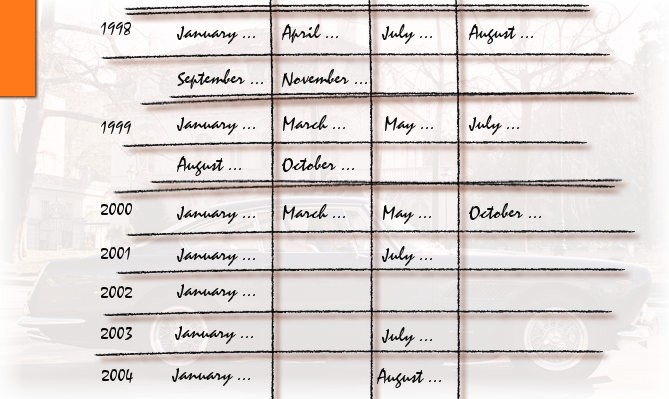 1998 January ... April ... July ... August ...
September ... November ...
1999 January ... March ... May ... July ...
August ... October ...
2000 January ... March ... May ... October ...
2001 January ... July ...
2002 January ...
2003 January ... July ...
2004 January ... August ...